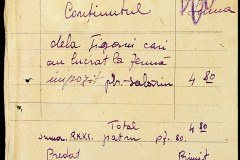 Conținutul Suma
dela Țigani cari
au lucrat la fermă
impozit pls. salarim 4 80
Total 4 80
suma RXXX. patru pf. 80.
Predat Primit